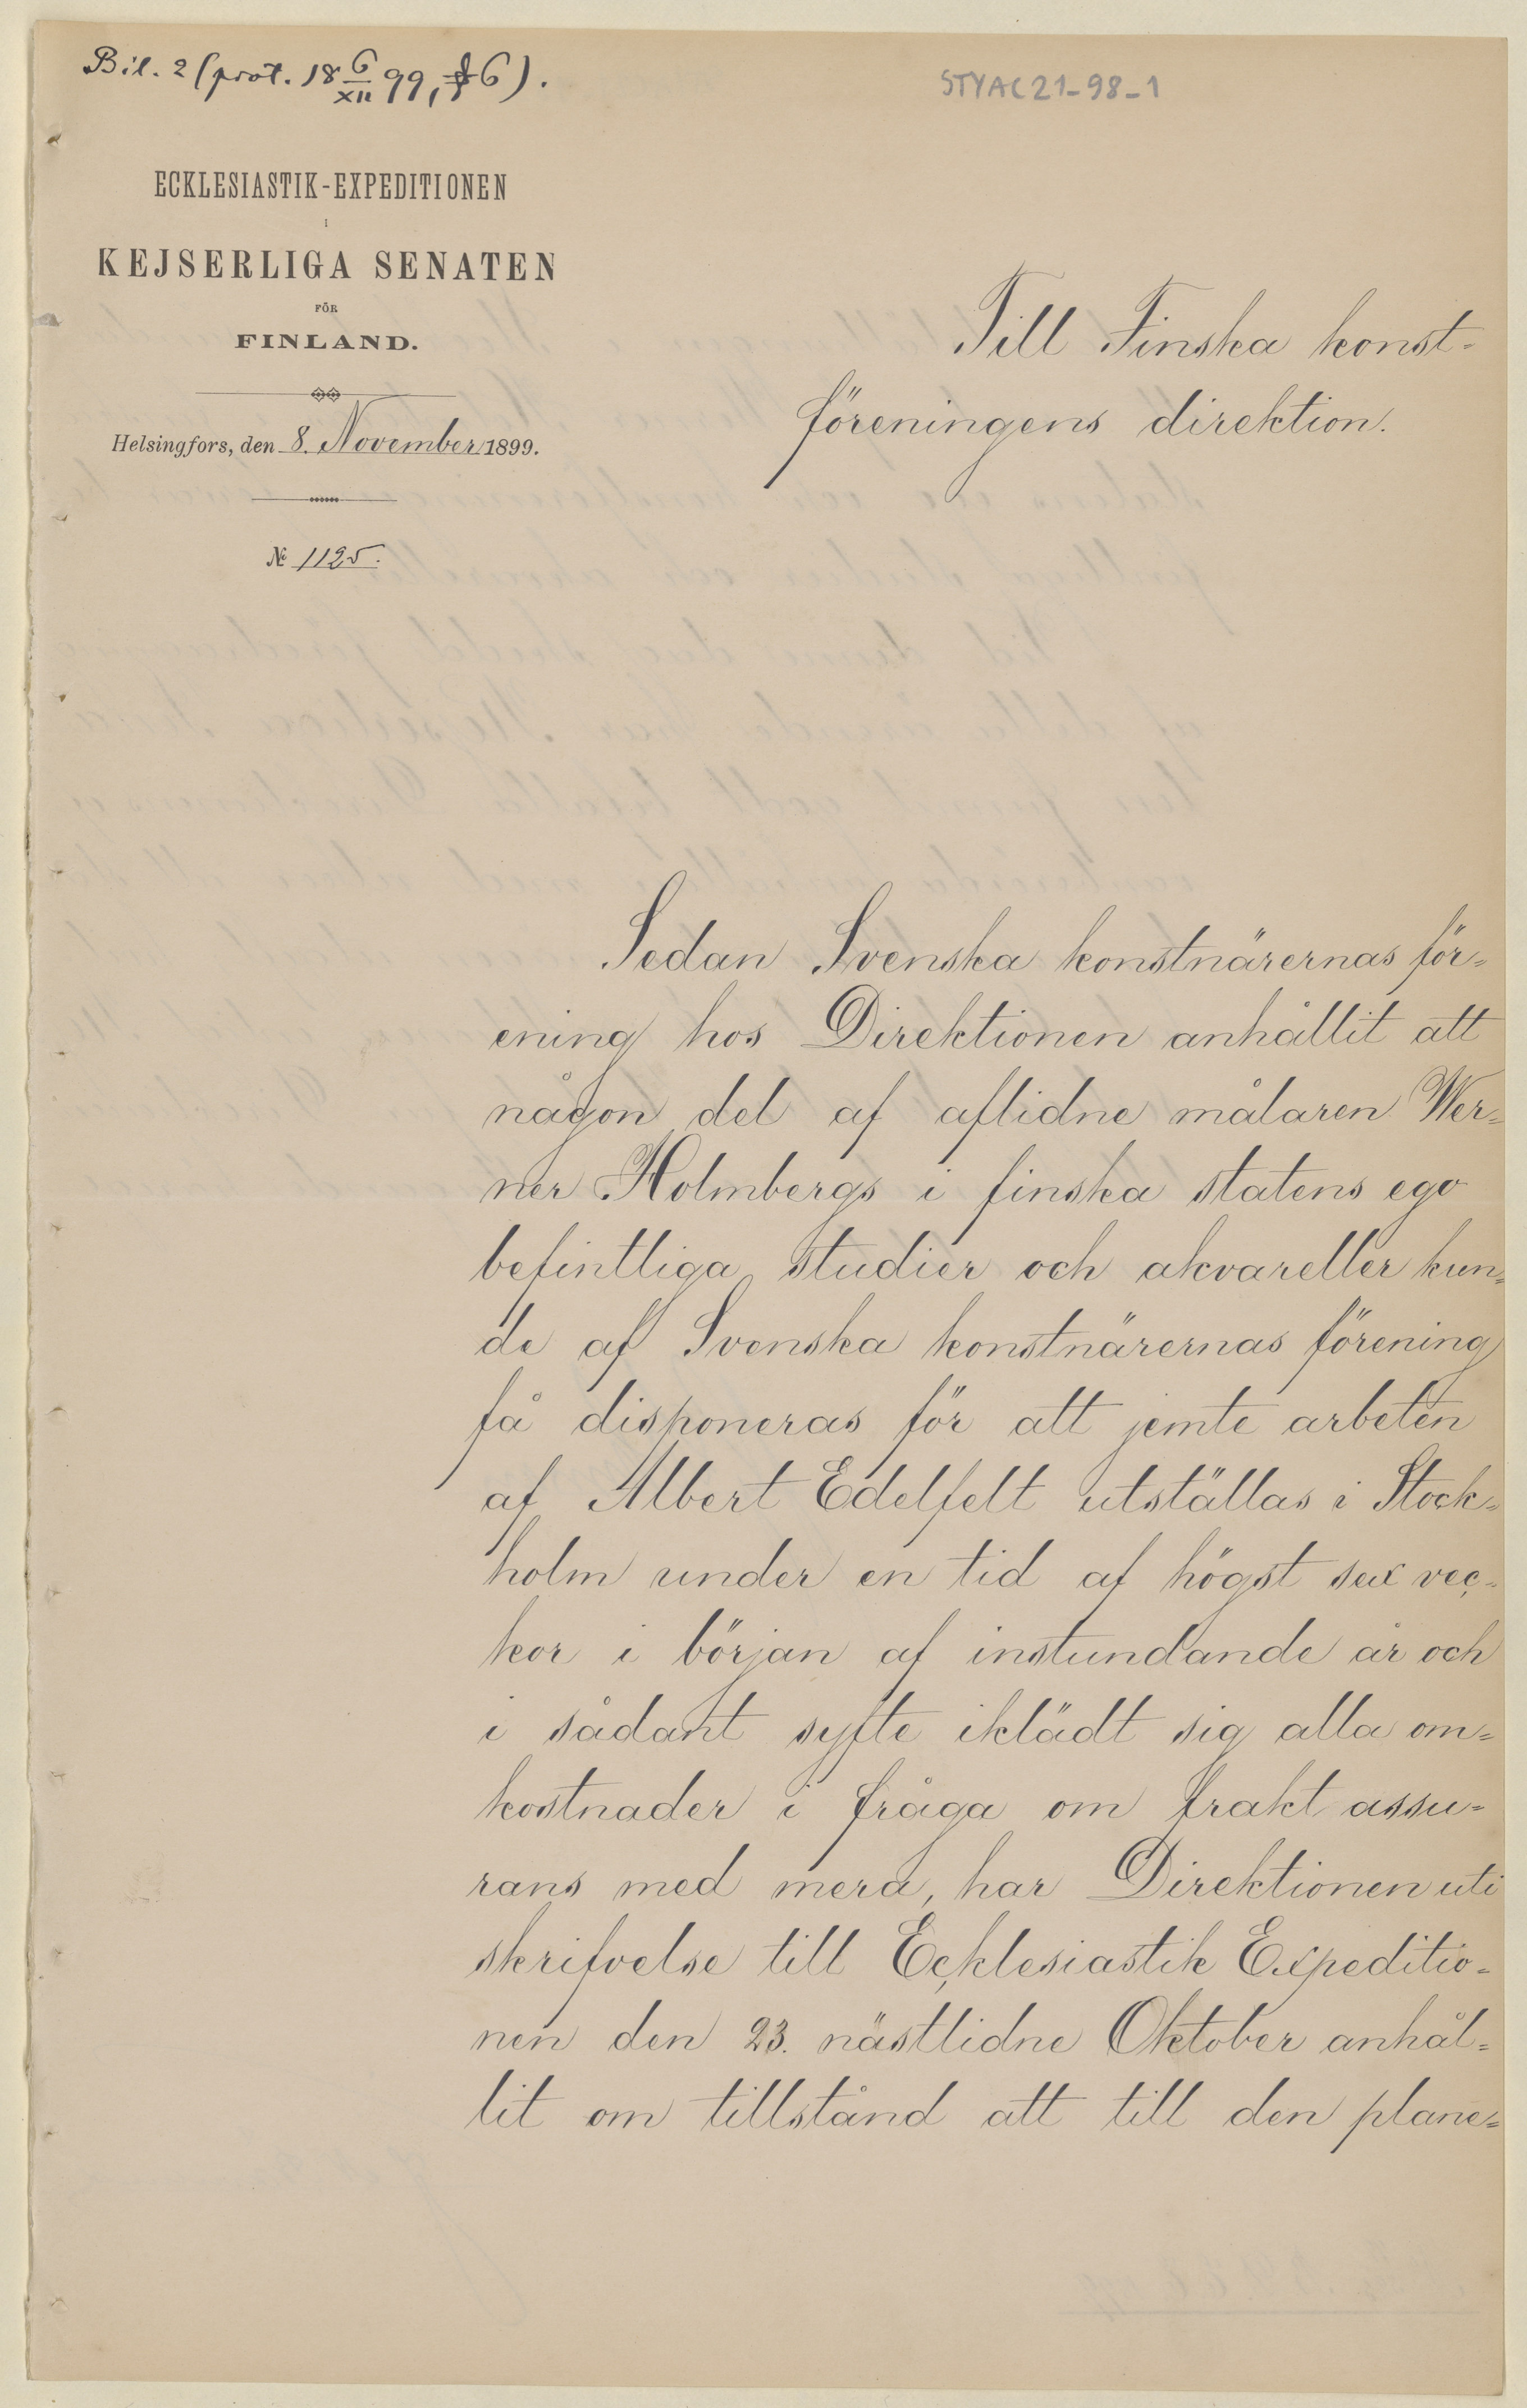 Bil. 2 (prot. 18 6/XII 99, § 6).
STYAC21-98-1
ECKLESIASTIK-EXPEDITIONEN
i
KEJSERLIGA SENATEN
FÖR
FINLAND.
Helsingfors, den 8. November 1899.
№ 1125.
Till Finska konst-
föreningens direktion.
Sedan Svenska konstnärernas för-
ening hos Direktionen anhållit att
någon del af aflidne målaren Wer-
ner Holmbergs i finska statens ego
befintliga studier och akvareller kun-
de af Svenska konstnärernas förening
få disponeras för att jemte arbeten
af Albert Edelfelt utställas i Stock-
holm under en tid af högst sex vec-
kor i början af instundande år och
i sådant syfte iklädt sig alla om-
kostnader i fråga om frakt assu-
rans med mera, har Direktionen uti
skrifvelse till Ecklesiastik Expeditio-
nen den 23. nästlidne Oktober anhål-
lit om tillstånd att till den plane-